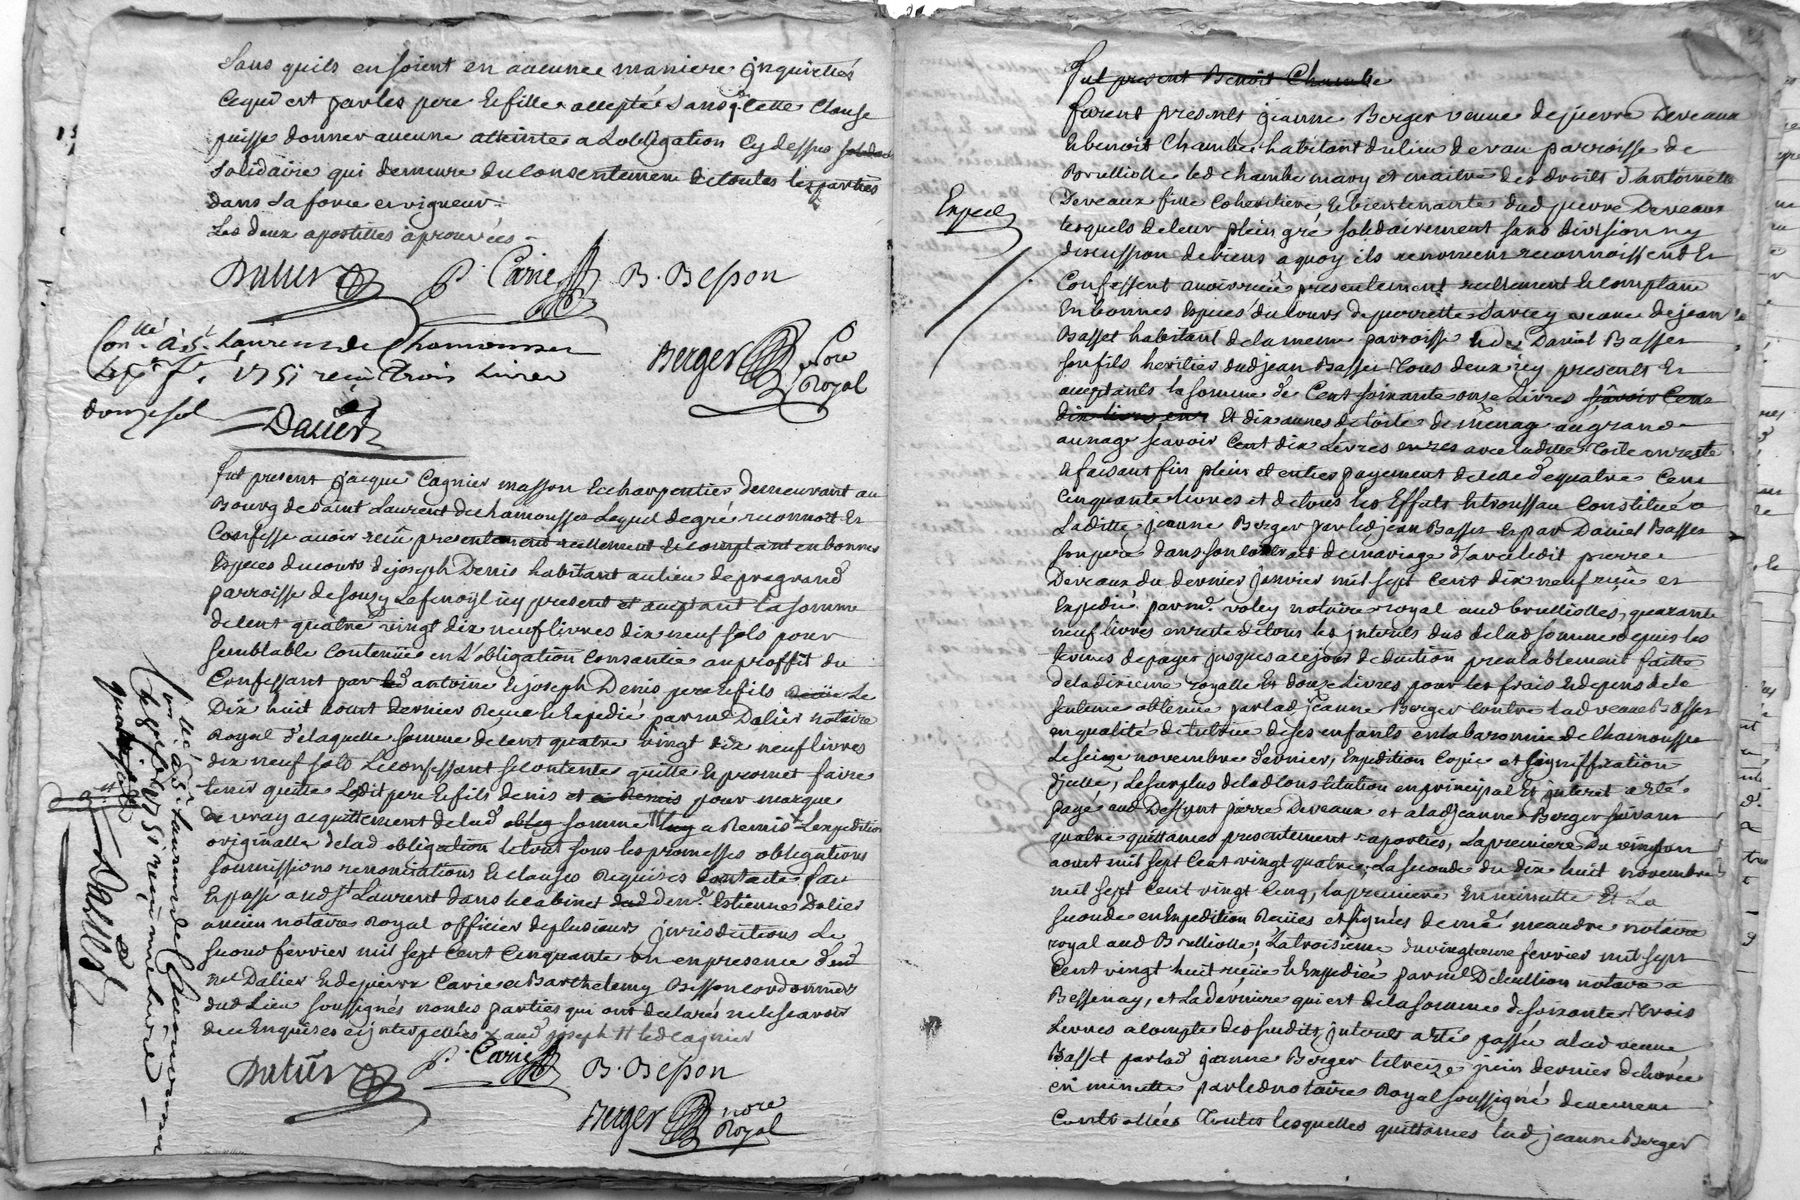 Sans quils en soient en aucune maniere jnquietés
Cequi est par les pere et fille accepté sans q. cette Clause
puisse donner aucune atteinte a Lobligation Cy dessus
solidaire qui demeure du consentement de toutes les parties
dans sa force et vigueur.
Les deux apostilles aprouvées.
Dalier P. Carie B. Besson
Con.llé a St. Laurens de Chamousset
1751 reçu Trois Livres
douze sol
Berger No.re Royal
Dalier
fut present jacque Cagnier masson et charpentier demeurant au
Bourg de Saint Laurent de chamousset Lequel de gré reconnoît et
Confesse avoir reçû presentement reellement et comptant en bonnes
Especes du cours de joseph Denis habitant au lieu de pregrand
parroisse de Souzy icy present et acceptant la somme
de cent quatre vingt dix neuf livres dix neuf sols pour
semblable Contenüe en L'obligation Consantie au proffit du
Confessant par antoine et joseph Denis pere et fils Le
Dix huit aout dernier Reçue et Expediée par me Dalier notaire
Royal de laquelle somme de cent quatre vingt dix neuf livres
dix neuf sols Le confessant se contente quitte et promet faire
tenir quitte Lesdit pere et fils denis pour marque
de vray acquittement de lad somme a Remis L'expedition
originalle de lad obligation le tout sous les promesses obligations
soumissions renontiations et clauses Requises fait
et passé aud St. Laurent dans le cabinet de me. Estienne Dalier
ancien notaire Royal officier de plusieurs jurisdictions Le
second fevrier mil sept cent Cinquante un en presence dud
me Dalier et de pierre Carie et Barthelemy Besson cordonnier
dud Lieu soussignés non les parties qui ont declarés ne le scavoir
de ce Enquises et jnterpellées
Dalier P. Carie B. Besson
Berger no.re Royal
Con.llé a St. Laurens de Chamousset
1751 reçu une livre
quatre sols
Dalier
fut present Benoit Chambe
furent presents jeanne Berger veuve de pierre Deveaux
et benoit Chambe habitant du lieu de vau parroisse de
Brulliolle led chambe mary et maitre des droits d'antoinette
Deveaux fille coheritiere et bientenante dud pierre Deveaux
Exped
lesquels de leur plein gré solidairement sans division ny
discussion de biens a quoy ils renoncent reconnoissent et
Confessent avoir reçû presentement reellement et comptant
En bonnes Especes du cours de pierrette Darcey veuve de jean
Basset habitant de la meme parroisse et de Daniel Basset
son fils heritier dud jean Basset Tous deux icy presents et
acceptants la somme de Cent soixante onze Livres sçavoir Cent
dix livres Et dix aunes de toile de menage au grand
aunage scavoir Cent dix Livres avec laditte Toile en reste
et faisant fin plein et entier payement de celle de quatre Cent
Cinquante livres et de tous les Effets et troussau Constitué a
Laditte jeanne Berger par led jean Basset et par Daniel Basset
son pere dans son contract de mariage d'avec ledit pierre
Deveaux du dernier janvier mil sept Cent dix neuf reçû et
Expedié par me. voley notaire royal aud brulliolles, quarante
neuf livres en reste de tous les jnterets dus de lad somme depuis les
termes de payer jusques a ce jour deduction prealablement faitte
de la dixieme royalle Et douze Livres pour les frais et depens de la
sentence obtenue par lad jeanne Berger contre lad veuve Basset
en qualité de tutrice de ses enfants en la baronnie de Chamousset
Le seize novembre dernier, Expedition Copie et signiffication
d'jcelle, Le surplus de lad Constitution en principal Et jnteret a été
payé aud Deffunt pierre Deveaux et a lad jeanne Berger suivant
quatre quittances presentement raportées, La premiere du vingt un
aout mil sept Cent vingt quatre, La seconde du dix huit novembre
mil sept Cent vingt Cinq, la premiere En minutte Et La
seconde en Expedition Reçües et signées de me. meandre notaire
royal aud Brulliolle, La troisieme du vingt fevrier mil sept
Cent vingt huit reçüe et Expediée par me Decullion notaire a
Bessenay, et La derniere qui est de la somme de soixante Trois
Livres a compte des susdits jnterets a été passée a lad veuve
Basset par lad jeanne Berger le treize juin dernier
en minutte par le notaire Royal soussigné duement
controllées Toutes lesquelles quittances lad jeanne Berger